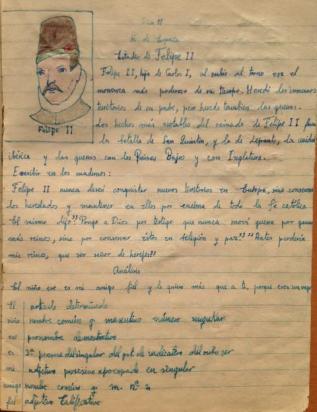 H. de España
Estudio de Felipe II
Felipe II, hijo de Carlos I, al subir al trono era el
monarca más poderoso de su tiempo. Heredó los inmensos
territorios de su padre, pero heredó también las guerras.
Los hechos más notables del reinado de Felipe II fueron
la batalla de San Quintín, y la de Lepanto, la unidad
Felipe II
ibérica y las guerras con los Países Bajos y con Inglaterra.
Escribir en los cuadernos:
Felipe II nunca deseó conquistar nuevos territorios en Europa, sino conservar
los heredados y mantener en ellos por encima de todo la fe católica
El mismo dijo "Pongo a Dios por testigo que nunca moví guerra por ganar
más reinos, sino por conservar éstos en religión y paz." "Antes perdería
mis reinos, que ser señor de herejes"
Análisis
El niño ese es mi amigo fiel y le quiero más que a ti, porque eres un
El artículo determinado
niño nombre común y masculino número singular
ese pronombre demostrativo
es 3ª persona del singular del pte de indicativo del verbo ser
mi adjetivo posesivo apocopado en singular
amigo nombre común g. m. nº s.
fiel adjetivo calificativo